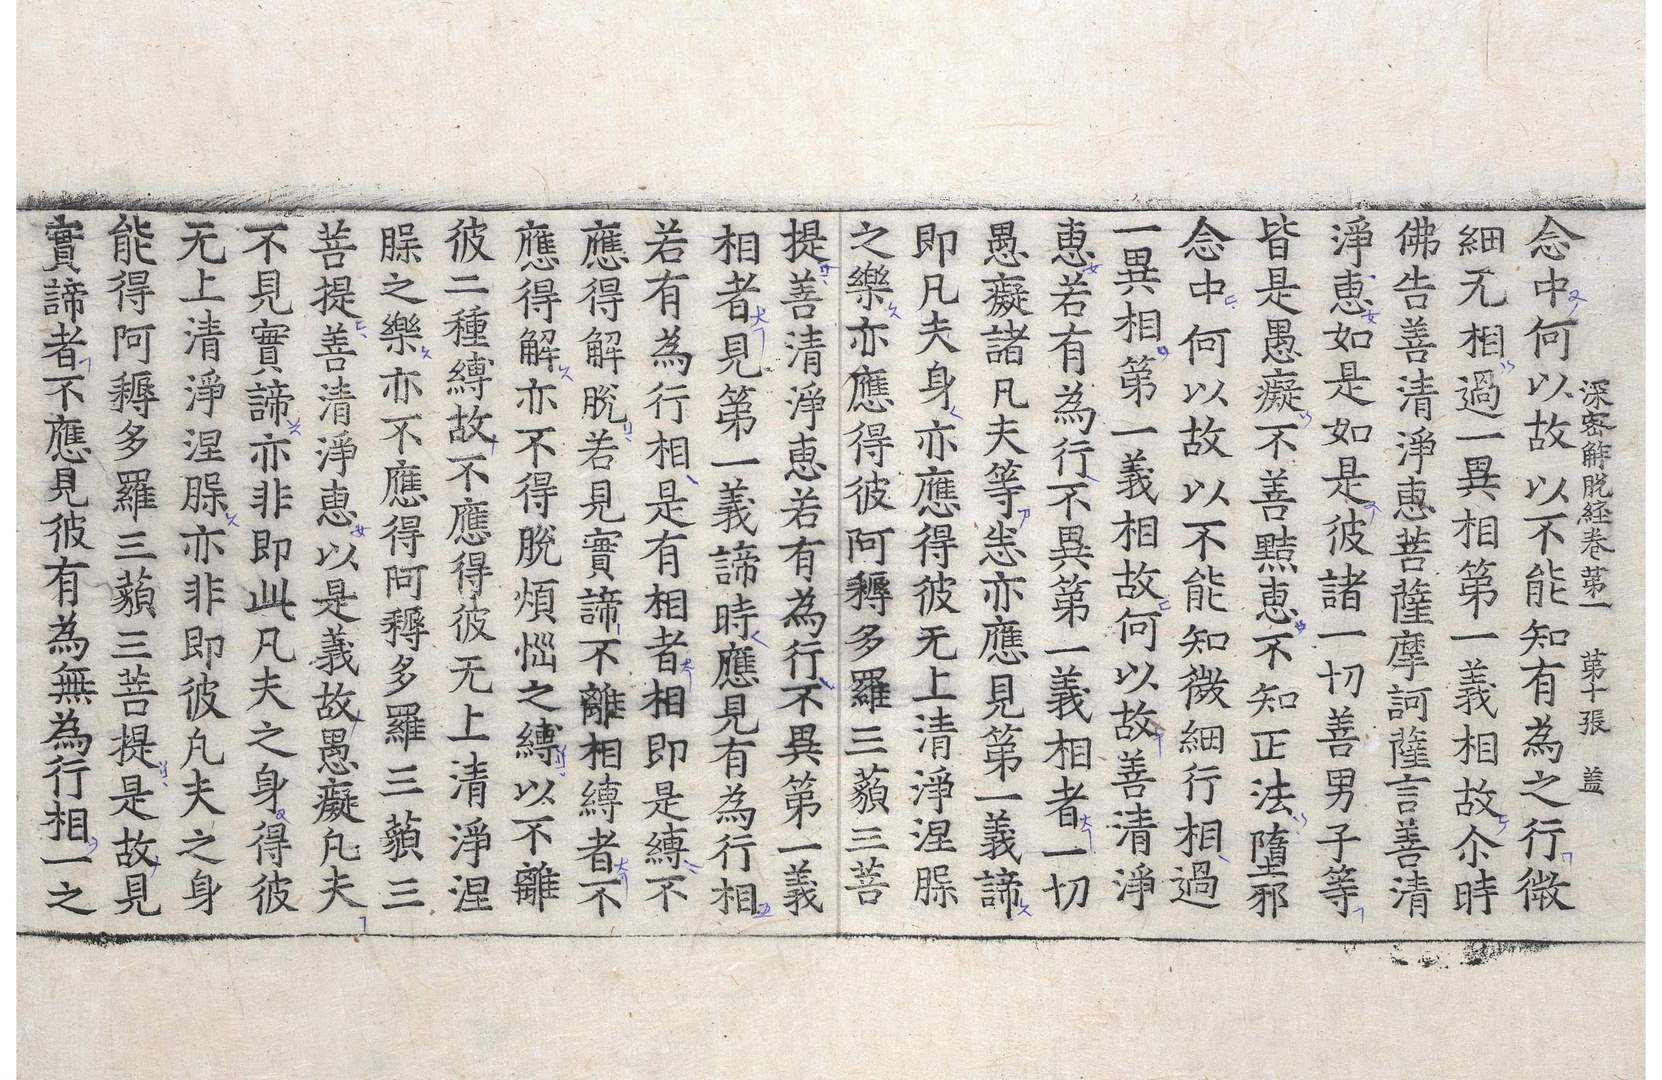 深密解脫経卷第一　第十張　盖
念中何以故以不能知有為之行微
細无相過一異相第一義相故尒時
佛告善清淨惠菩薩摩訶薩言善清
淨惠如是如是彼諸一切善男子等
皆是愚癡不善黠惠不知正法墮邪
念中何以故以不能知微細行相過
一異相第一義相故何以故善清淨
惠若有為行不異第一義相者一切
愚癡諸凡夫等悉亦應見第一義諦
即凡夫身亦應得彼无上清淨涅槃
之樂亦應得彼阿耨多羅三藐三菩
提善清淨惠若有為行不異第一義
相者見第一義諦時應見有為行相
若有為行相是有相者相即是縛不
應得解脫若見實諦不離相縛者不
應得解亦不得脫煩惱之縛以不離
彼二種縛故不應得彼无上清淨涅
槃之樂亦不應得阿耨多羅三藐三
菩提善清淨惠以是義故愚癡凡夫
不見實諦亦非即此凡夫之身得彼
无上清淨涅槃亦非即彼凡夫之身
能得阿耨多羅三藐三菩提是故見
實諦者不應見彼有為無為行相一之